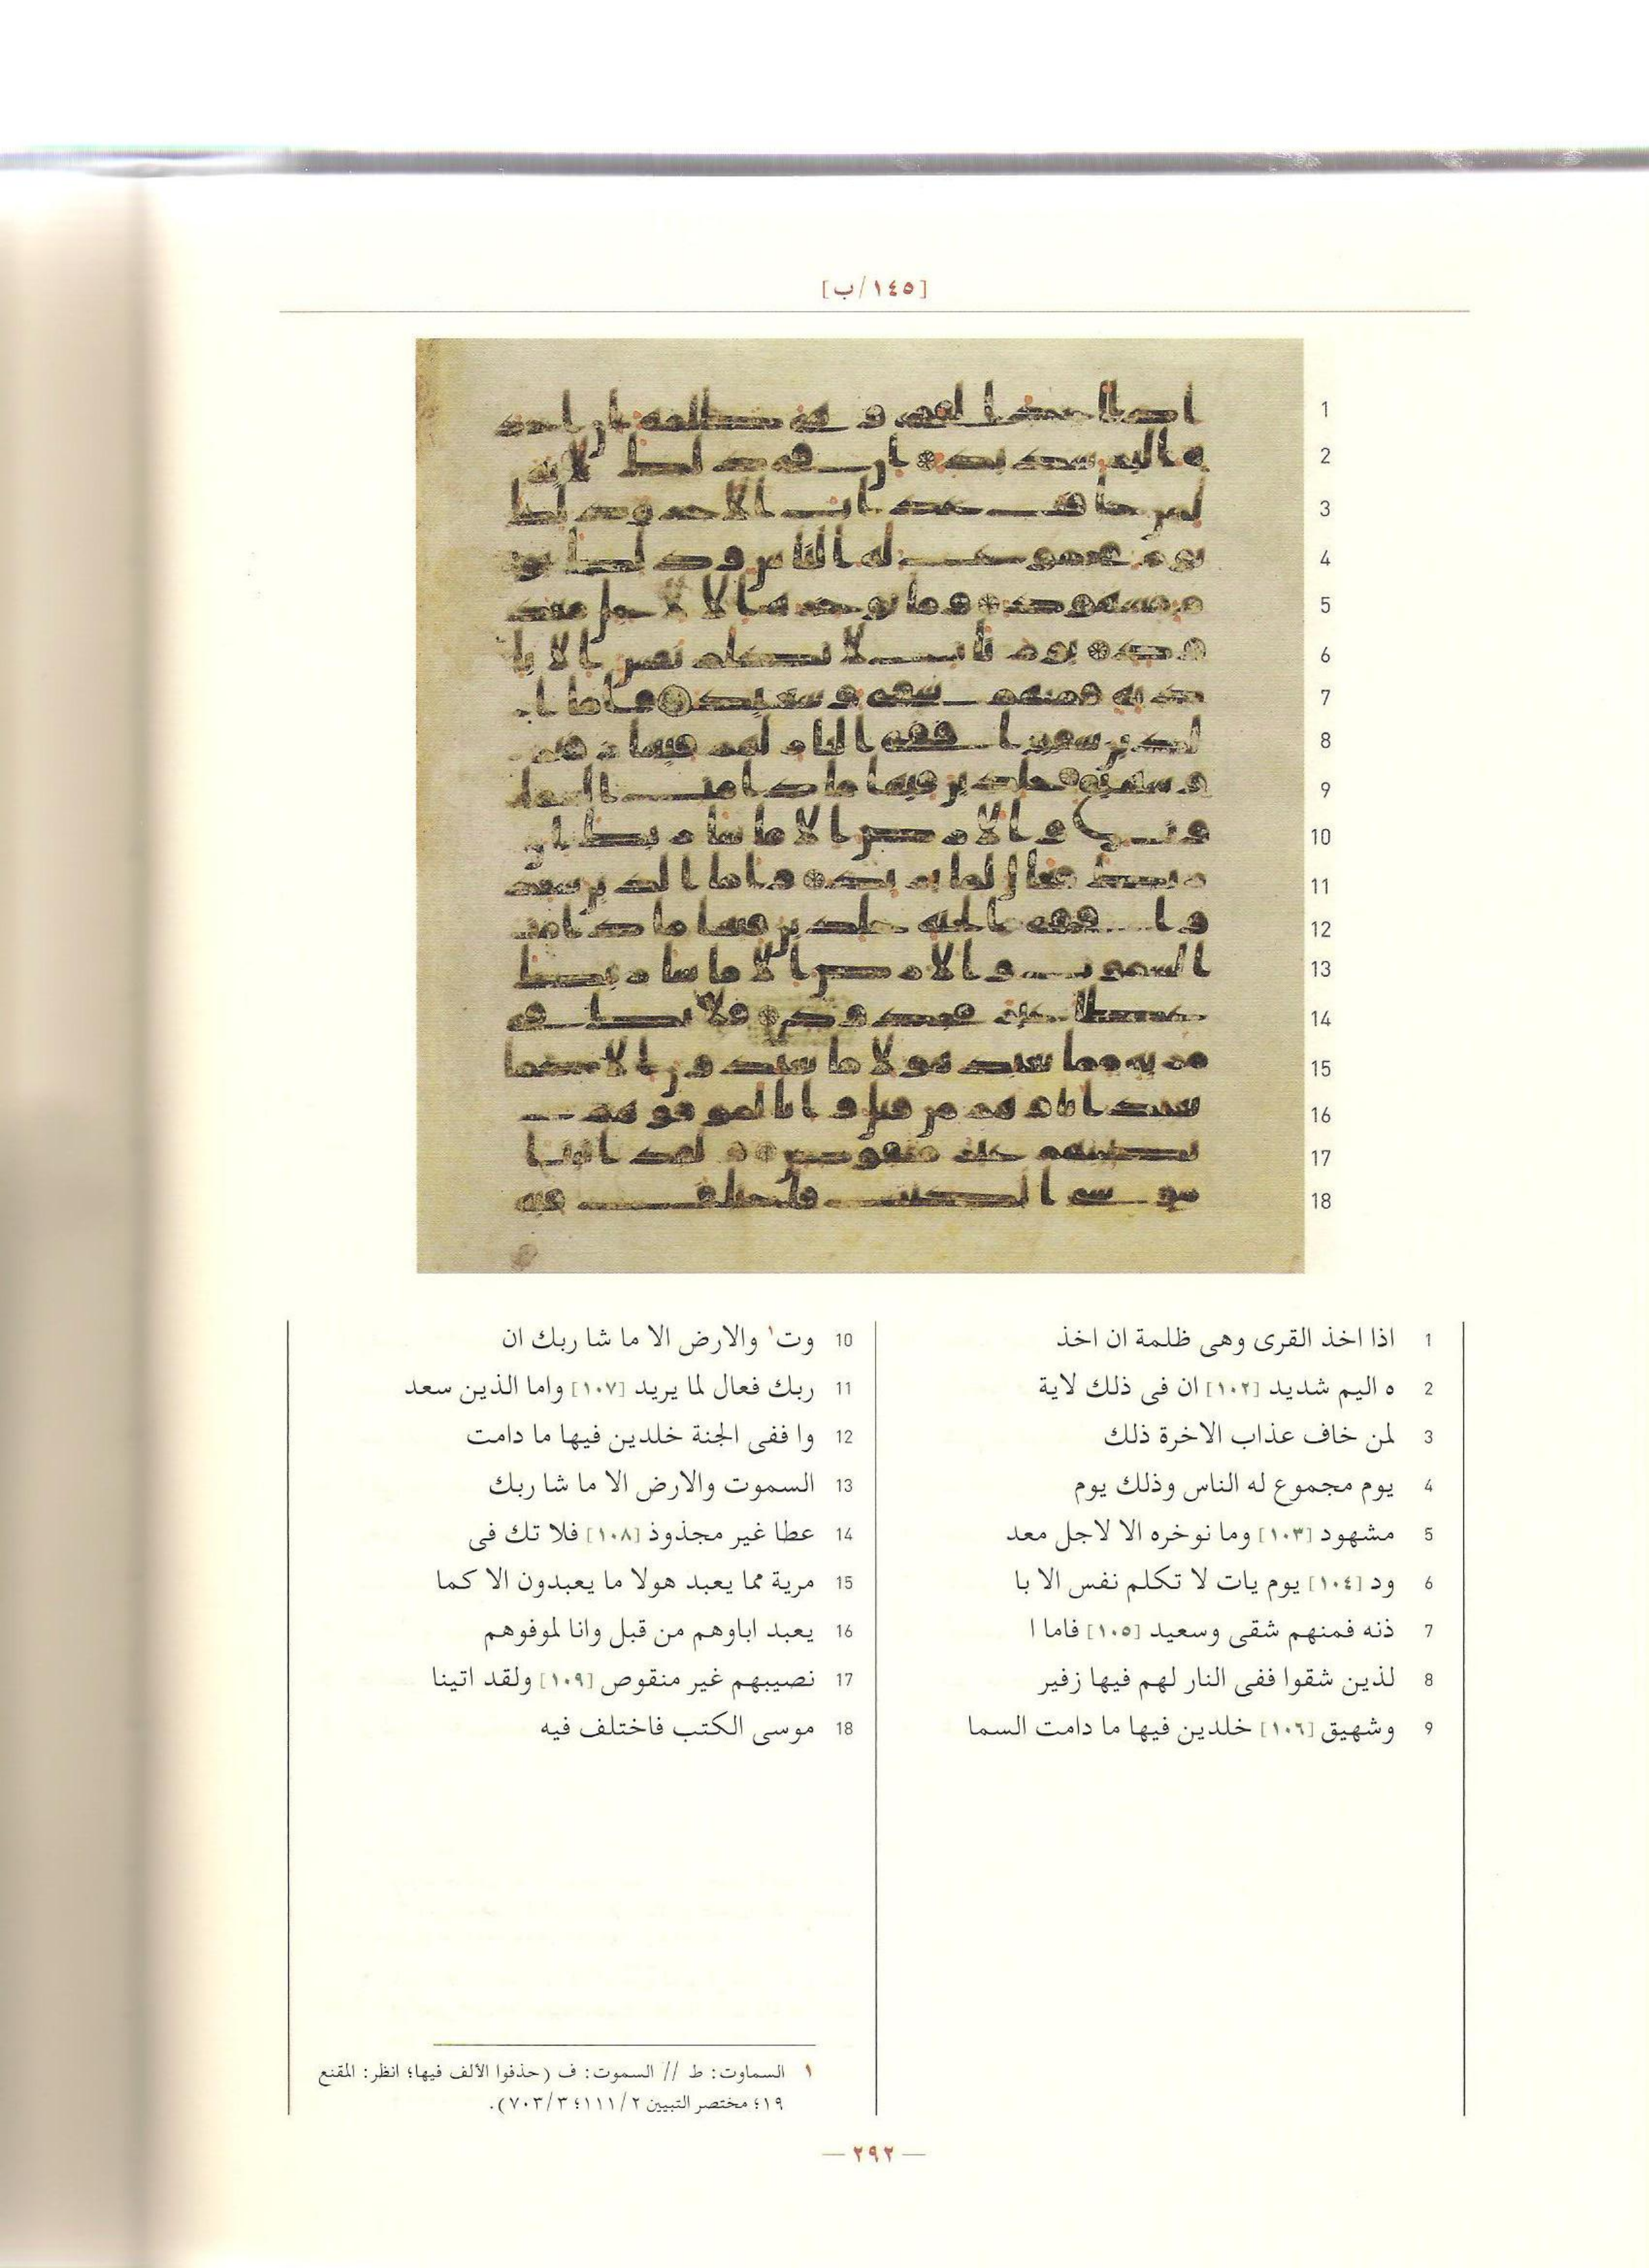 [١٤٥/ب]
1 اذا اخذ القرى وهى ظلمة ان اخذ
2 ه اليم شديد [١٠٢] ان فى ذلك لاية
3 لمن خاف عذاب الاخرة ذلك
4 يوم مجموع له الناس وذلك يوم
5 مشهود [١٠٣] وما نوخره الا لاجل معد
6 ود [١٠٤] يوم يات لا تكلم نفس الا با
7 ذنه فمنهم شقى وسعيد [١٠٥] فاما ا
8 لذين شقوا ففى النار لهم فيها زفير
9 وشهيق [١٠٦] خلدين فيها ما دامت السما
10 وت١ والارض الا ما شا ربك ان
11 ربك فعال لما يريد [١٠٧] واما الذين سعد
12 وا ففى الجنة خلدين فيها ما دامت
13 السموت والارض الا ما شا ربك
14 عطا غير مجذوذ [١٠٨] فلا تك فى
15 مرية مما يعبد هولا ما يعبدون الا كما
16 يعبد اباوهم من قبل وانا لموفوهم
17 نصيبهم غير منقوص [١٠٩] ولقد اتينا
18 موسى الكتب فاختلف فيه
١ السماوت: ط // السموت: ف (حذفوا الألف فيها؛ انظر: المقنع
١٩؛ مختصر التبيين ١١١/٢؛ ٧٠٣/٣).
— ٢٩٢ —